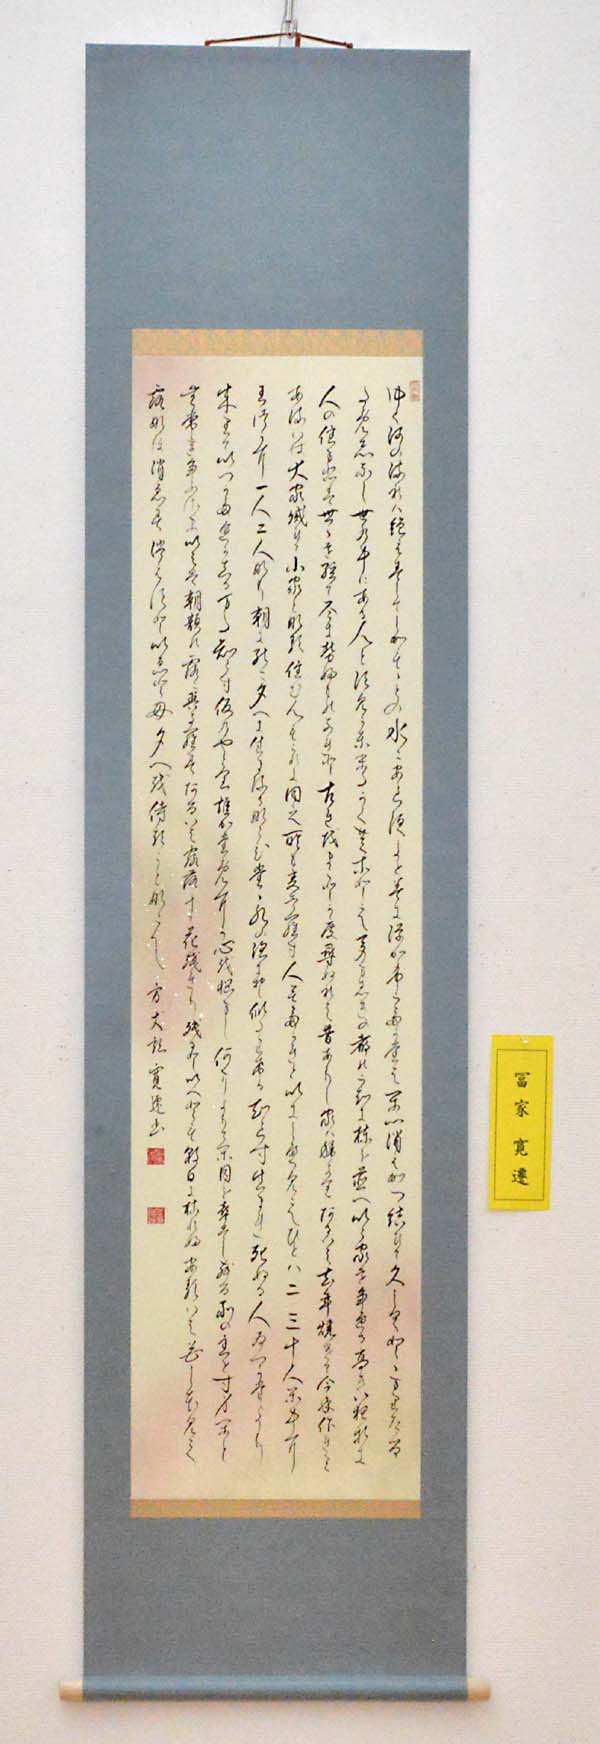 ゆく河の流れは絶えずしてしかももとの水にあらずよどみに浮かぶうたかたはかつ消えかつ結びて久しくとどまりたる
ためしなし世の中にある人とすみかと又かくのごとし都のうちに棟を並べいらかを争へる高きいやしき
人の住まひは世々を経て尽きせぬものなれど是をまことかと尋ぬれば昔ありし家はまれなりあるは去年焼けて今年作れり
あるは大家滅びて小家となる住む人も是に同じ所も変はらず人も多かれどいにしへ見し人は二三十人が中に
わづかに一人二人なり朝に死に夕べに生まるるならひただ水の泡にぞ似たりける知らず生まれ死ぬる人いづ方より
来たりていづかたへか去る又知らず仮の宿り誰が為にか心を悩まし何によりてか目を喜ばしむる其の主とすみかと
無常を争ふさまいはば朝顔の露に異ならずあるいは露落ちて花残れり残るといへども朝日に枯れぬあるいは花しぼみて
露なほ消えず消えずといへども夕べを待つことなし 方丈記 寛遷書
冨家 寛遷